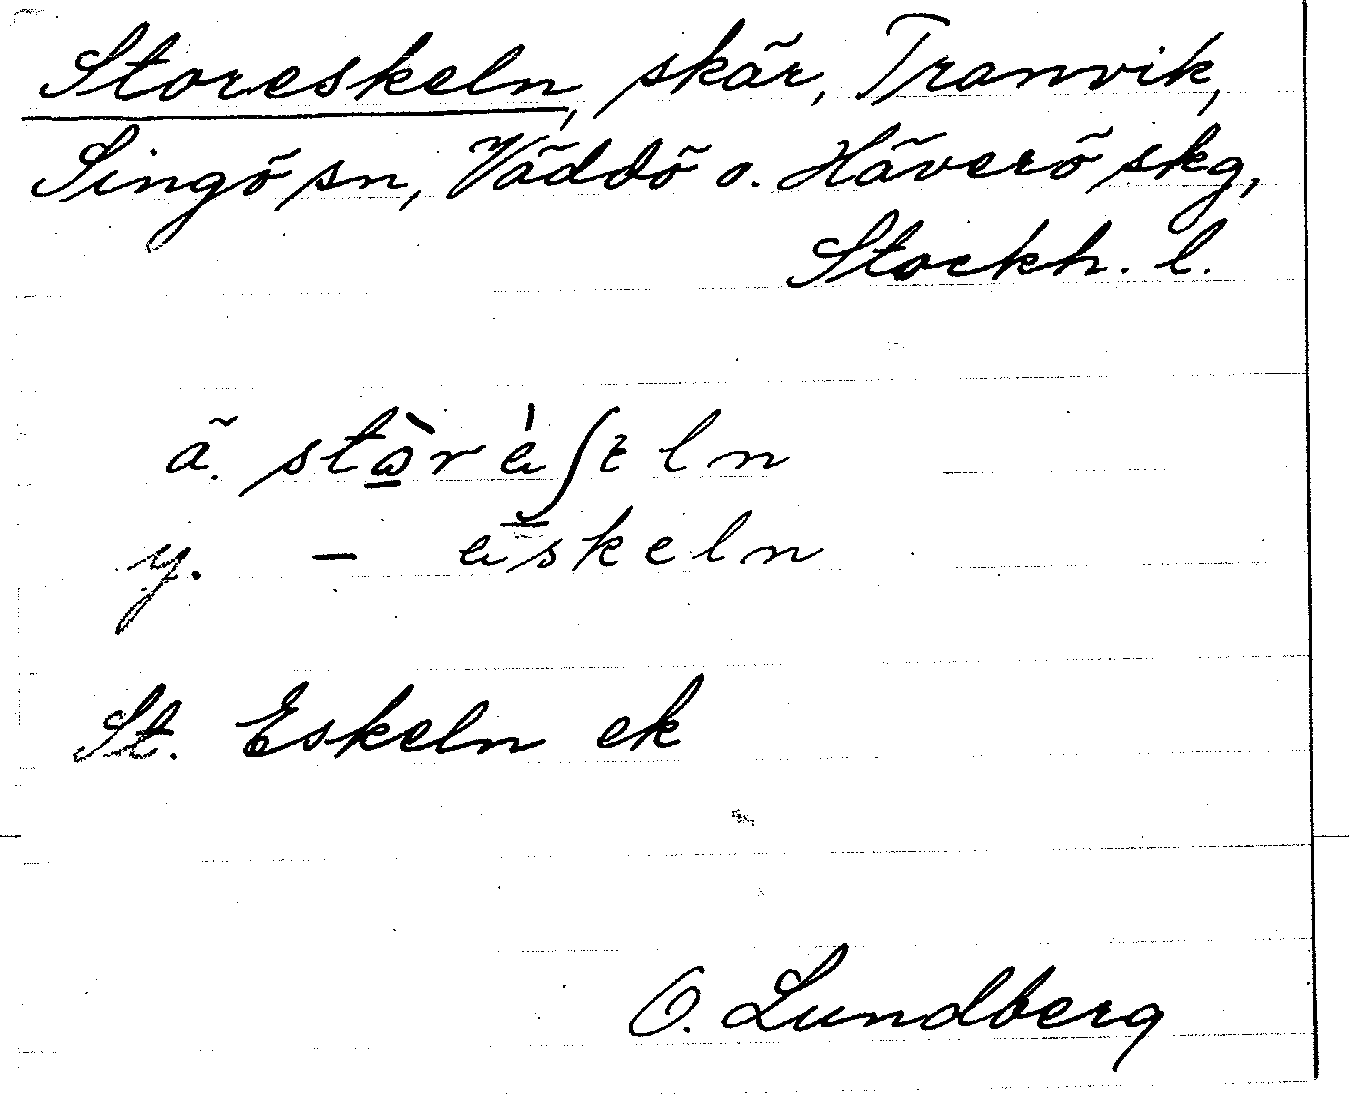 Storeskeln, skär, Tranvik,
Singö sn, Väddö o. Häverö skg,
Stockh. l.
ä.
y. –
St. Eskeln ek
O. Lundberg